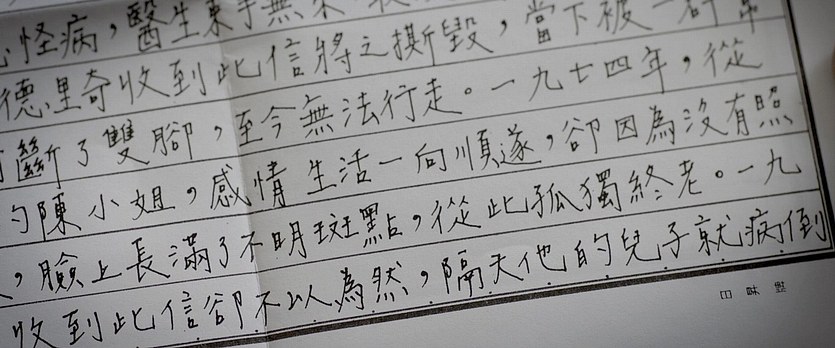 怪病，醫生束手無
德里奇收到此信將之撕毀，當下被一群
斷了雙腳，至今無法行走。一九七四年，從
的陳小姐，感情生活一向順遂，卻因為沒有照
，臉上長滿了不明斑點，從此孤獨終老。一九
收到此信卻不以為然，隔天他的兒子就病倒